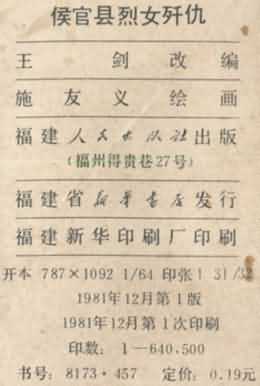 侯官县烈女歼仇
王剑改编
施友义绘画
福建人民出版社出版
(福州得贵巷27号)
福建省新华书店发行
福建新华印刷厂印刷
开本 787×1092 1/64 印张1 31/32
1981年12月第1版
1981年12月第1次印刷
印数: 1—640,500
书号: 8173·457 定价: 0.19元